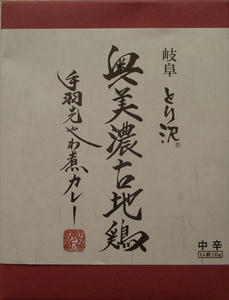 岐阜 とり沢®
奥美濃古地鶏
手羽先やわ煮カレー
中辛
1人前220g